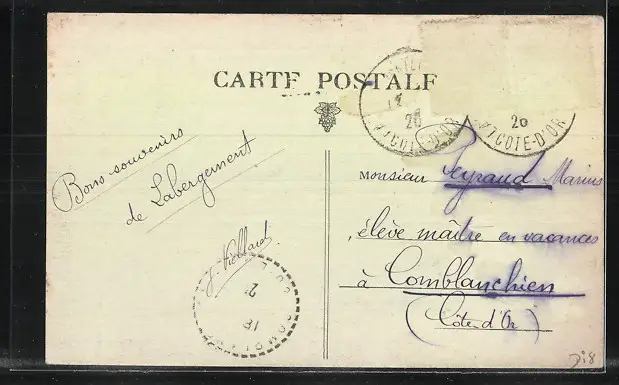 CARTE POSTALE
Bons souvenirs
de Labergement
Monsieur Peyraud Marius
élève maître en vacances
à Comblanchien
(Côte d'Or)
20
CÔTE-D'OR
20
CÔTE-D'OR
2
18